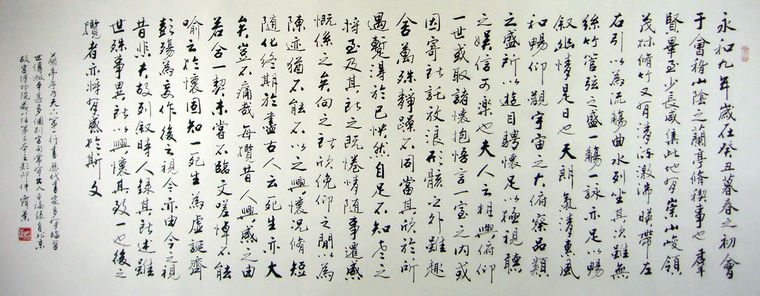 永和九年歲在癸丑暮春之初會
于會稽山陰之蘭亭脩稧事也羣
賢畢至少長咸集此地有崇山峻領
茂林脩竹又有清流激湍暎帶左
右引以為流觴曲水列坐其次雖無
絲竹管弦之盛一觴一詠亦足以暢
敘幽情是日也天朗氣清惠風
和暢仰觀宇宙之大俯察品類
之盛所以遊目騁懷足以極視聽
之娛信可樂也夫人之相與俯仰
一世或取諸懷抱悟言一室之內或
因寄所託放浪形骸之外雖趣
舍萬殊靜躁不同當其欣於所
遇暫得於己怏然自足不知老之
將至及其所之既惓情隨事遷感
慨係之矣向之所欣俛仰之間以為
陳迹猶不能不以之興懷況脩短
隨化終期於盡古人云死生亦大
矣豈不痛哉每攬昔人興感之由
若合一契未嘗不臨文嗟悼不能
喻之於懷固知一死生為虛誕齊
彭殤為妄作後之視今亦由今之視
昔悲夫故列敘時人錄其所述雖
世殊事異所以興懷其致一也後之
攬者亦將有感於斯文
蘭亭序乃天下第一行書歷代書家多有臨習
世傳摹本甚多個別字尚有出入今臨自北京
故宮博物院藏八柱第三本之影印件